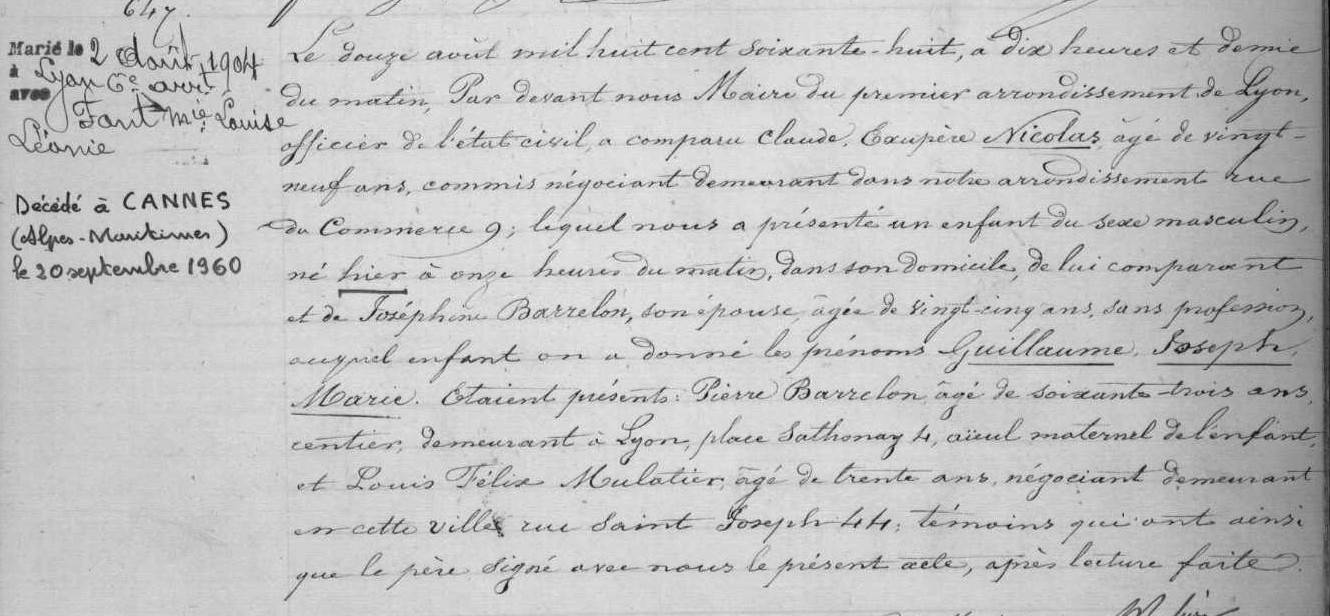 647.
Marié le 2 Août 1904
à Lyon 6e arrt
avec Font Mie Louise
Léonie
Décédé à CANNES
(Alpes-Maritimes)
le 20 septembre 1960
Le douze août mil huit cent soixante-huit, à dix heures et demie
du matin, Par devant nous Maire du premier arrondissement de Lyon,
officier de l'état civil, a comparu Claude, Exupère Nicolas, âgé de vingt-
neuf ans, commis négociant demeurant dans notre arrondissement rue
du Commerce 9; lequel nous a présenté un enfant du sexe masculin,
né hier à onze heures du matin, dans son domicile, de lui comparant
et de Joséphine Barrelon, son épouse, âgée de vingt-cinq ans, sans profession,
auquel enfant on a donné les prénoms Guillaume, Joseph,
Marie. Etaient présents: Pierre Barrelon, âgé de soixante-trois ans,
rentier, demeurant à Lyon, place Sathonay 4, aïeul maternel de l'enfant,
et Louis Félix Mulatier, âgé de trente ans, négociant demeurant
en cette ville rue Saint Joseph 44; témoins qui ont ainsi
que le père signé avec nous le présent acte, après lecture faite.